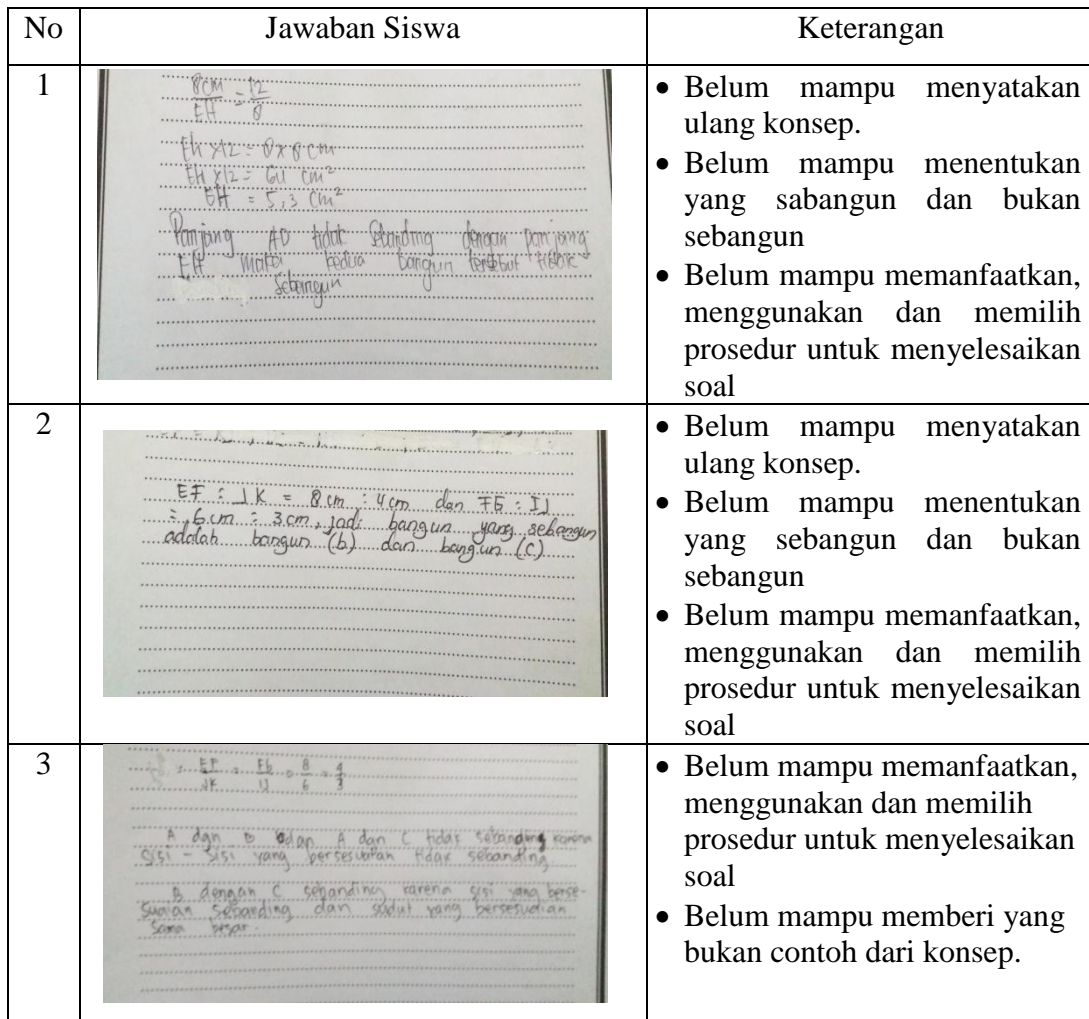 No Jawaban Siswa Keterangan
1
8cm = 12
EH 8
EH x12 = 8x8 cm
EH x12 = 64 cm²
EH = 5,3 cm²
Panjang AD tidak Sebanding dengan panjang
EH maka kedua bangun tersebut tidak
Sebangun
• Belum mampu menyatakan
ulang konsep.
• Belum mampu menentukan
yang sabangun dan bukan
sebangun
• Belum mampu memanfaatkan,
menggunakan dan memilih
prosedur untuk menyelesaikan
soal
2
EF : JK = 8 cm : 4 cm dan FG : IJ
= 6 cm : 3 cm, jadi bangun yang sebangun
adalah bangun (b) dan bangun (c)
• Belum mampu menyatakan
ulang konsep.
• Belum mampu menentukan
yang sebangun dan bukan
sebangun
• Belum mampu memanfaatkan,
menggunakan dan memilih
prosedur untuk menyelesaikan
soal
3
= EF = FG = 8 = 4
JK IJ 6 3
A dgn B dan A dan C tidak sebanding karena
sisi - sisi yang bersesuaian tidak sebanding
B dengan C sebanding karena sisi yang berse-
suaian sebanding dan sudut yang bersesuaian
sama besar.
• Belum mampu memanfaatkan,
menggunakan dan memilih
prosedur untuk menyelesaikan
soal
• Belum mampu memberi yang
bukan contoh dari konsep.